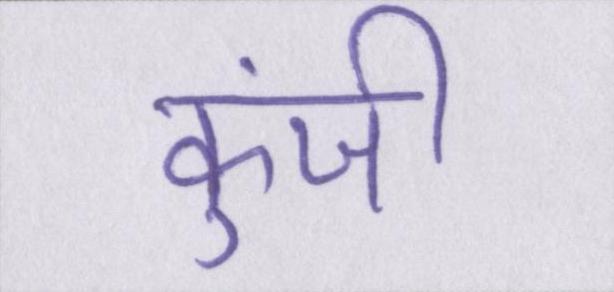 कुंजी